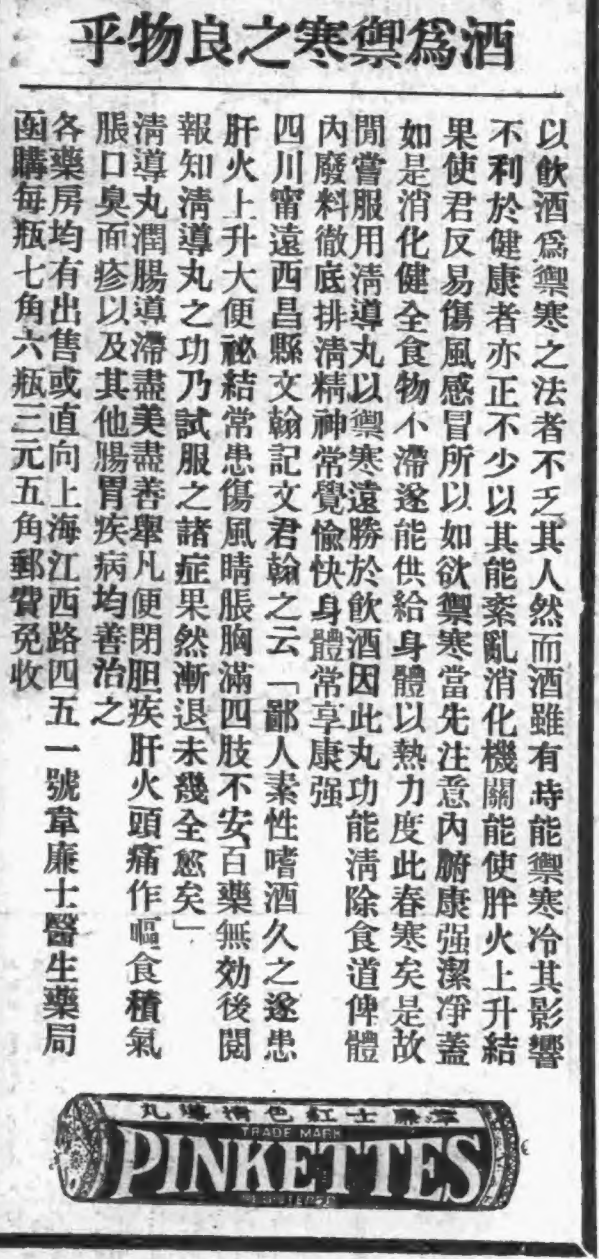 酒爲禦寒之良物乎
以飲酒爲禦寒之法者不乏其人然而酒雖有時能禦寒冷其影響
不利於健康者亦正不少以其能紊亂消化機關能使肝火上升結
果使君反易傷風感冒所以如欲禦寒當先注意內腑康强潔凈蓋
如是消化健全食物不滯遂能供給身體以熱力度此春寒矣是故
閒嘗服用淸導丸以禦寒遠勝於飲酒因此丸功能淸除食道俾體
內廢料徹底排淸精神常覺愉快身體常享康强
四川甯遠西昌縣文翰記文君翰之云「鄙人素性嗜酒久之遂患
肝火上升大便祕結常患傷風晴脹胸滿四肢不安百藥無効後閱
報知淸導丸之功乃試服之諸症果然漸退未幾全愈矣」
淸導丸潤腸導滯盡美盡善舉凡便閉胆疾肝火頭痛作嘔食積氣
脹口臭面疹以及其他腸胃疾病均善治之
各藥房均有出售或直向上海江西路四五一號韋廉士醫生藥局
函購每瓶七角六瓶三元五角郵費免收
韋廉士紅色淸導丸
TRADE MARK
PINKETTES
REGISTERED